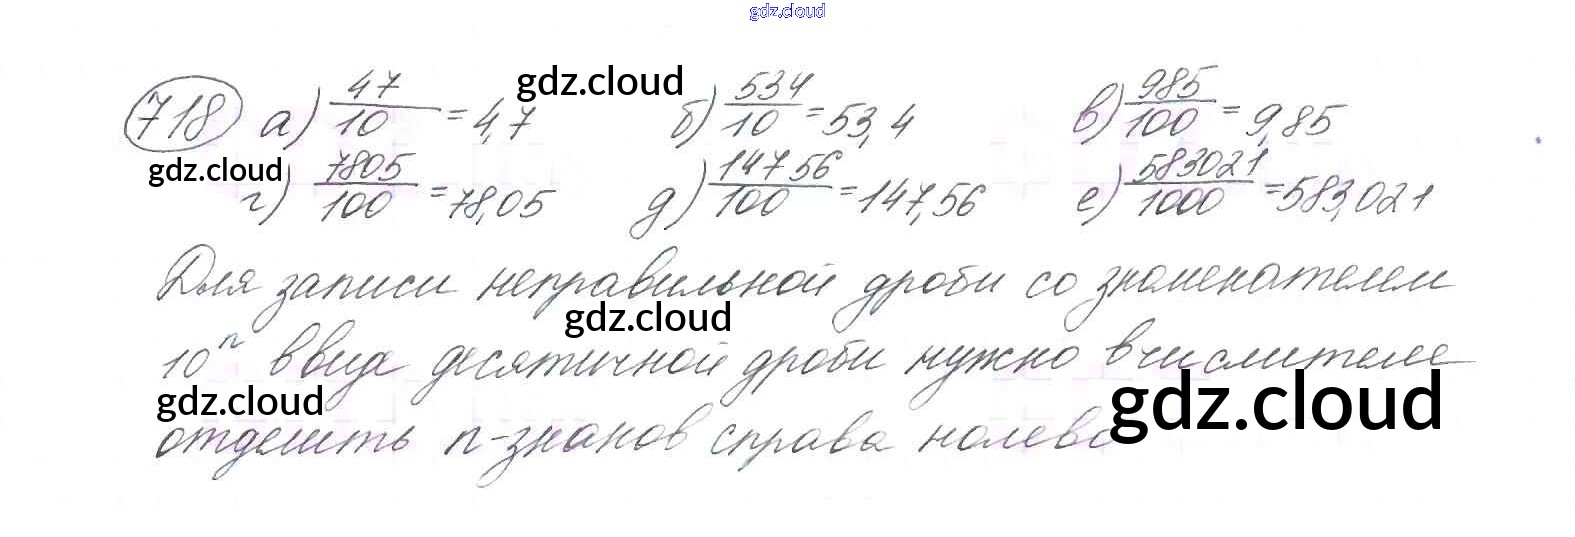 gdz.cloud
718 а) 47/10 = 4,7 gdz.cloud б) 534/10 = 53,4 в) 985/100 = 9,85
gdz.cloud
г) 7805/100 = 78,05 д) 14756/100 = 147,56 е) 583021/1000 = 583,021
Для записи неправильной дроби со знаменателем
gdz.cloud
10ⁿ в виде десятичной дроби нужно в числителе
gdz.cloud gdz.cloud
отделить n-знаков справа налево